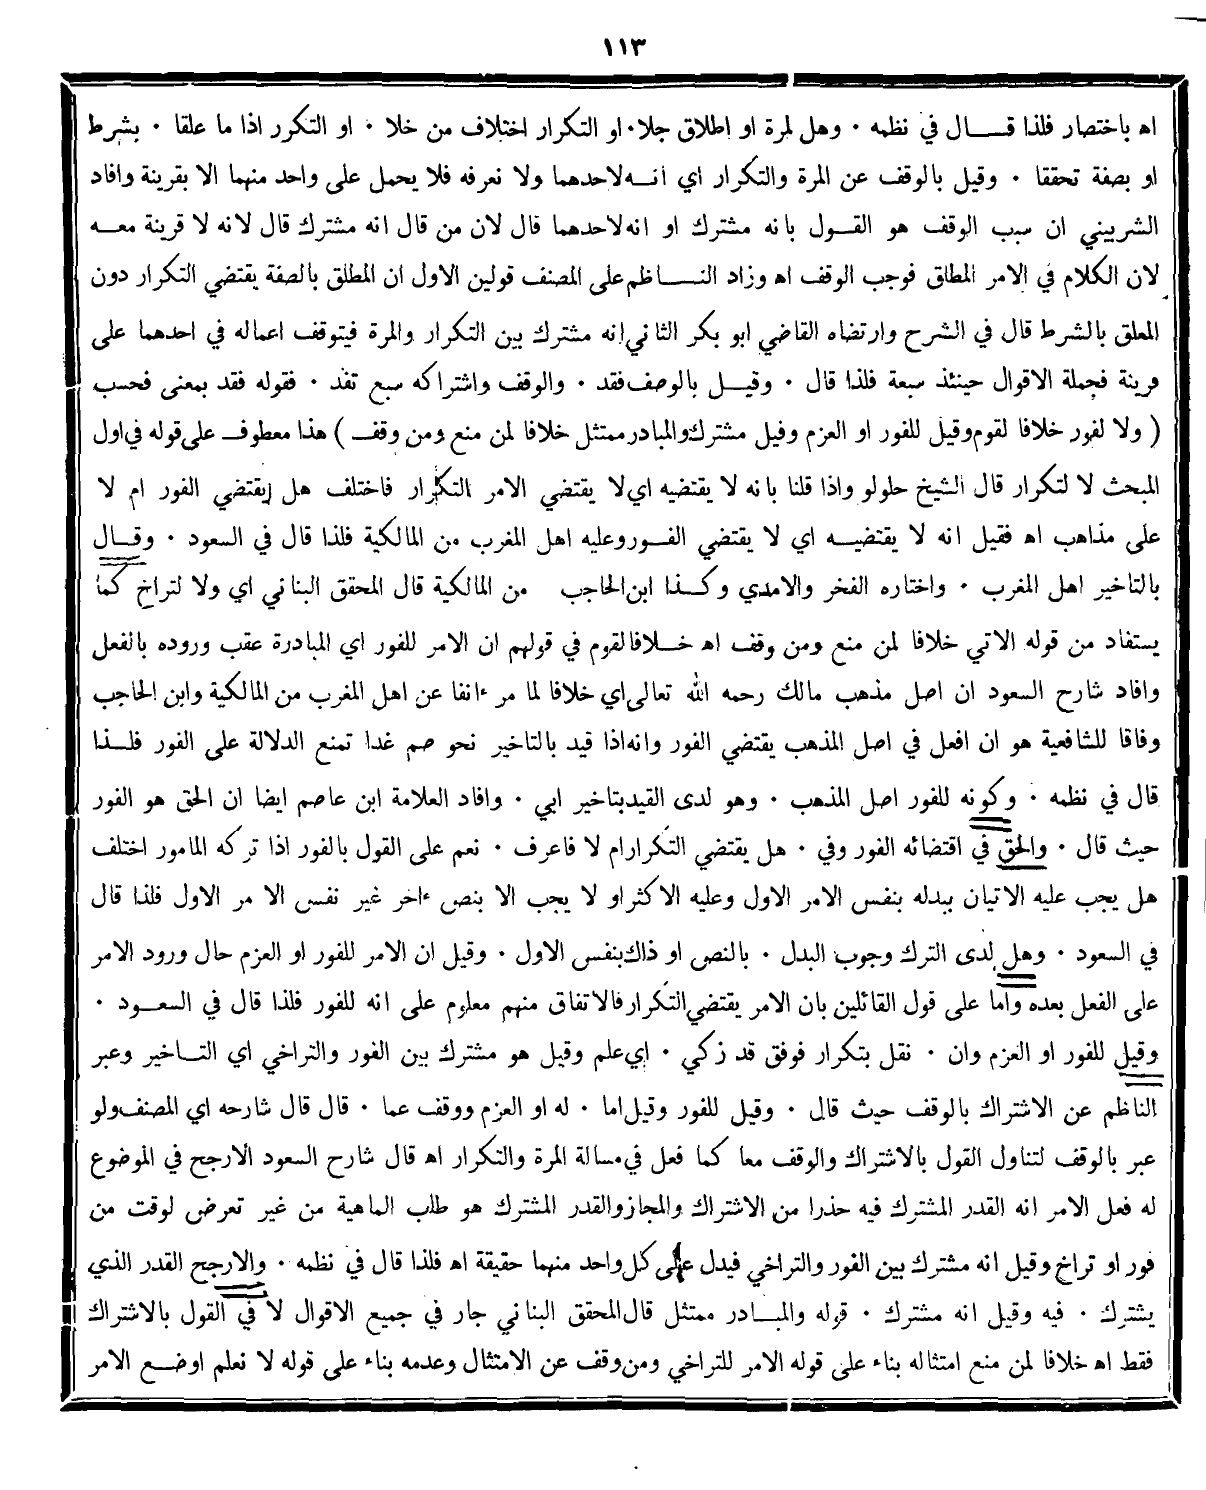 ١١٣
اه باختصار فلذا قال في نظمه ٠ وهل لمرة او اطلاق جلا ٠ او التكرار اختلاف من خلا ٠ او التكرر اذا ما علقا ٠ بشرط
او بصفة تحققا ٠ وقيل بالوقف عن المرة والتكرار اي انه لاحدهما ولا نعرفه فلا يحمل على واحد منهما الا بقرينة وافاد
الشربيني ان سبب الوقف هو القول بانه مشترك او انه لاحدهما قال لان من قال انه مشترك قال لانه لا قرينة معه
لان الكلام في الامر المطلق فوجب الوقف اه وزاد الناظم على المصنف قولين الاول ان المطلق بالصفة يقتضي التكرار دون
المعلق بالشرط قال في الشرح وارتضاه القاضي ابو بكر الثاني انه مشترك بين التكرار والمرة فيتوقف اعماله في احدهما على
قرينة فجملة الاقوال حينئذ سبعة فلذا قال ٠ وقيل بالوصف فقد ٠ والوقف واشتراكه سبع تفد ٠ فقوله فقد بمعنى فحسب
( ولا لفور خلافا لقوم وقيل للفور او العزم وقيل مشترك والمبادر ممتثل خلافا لمن منع ومن وقف ) هذا معطوف على قوله في اول
المبحث لا لتكرار قال الشيخ حلولو واذا قلنا بانه لا يقتضيه اي لا يقتضي الامر التكرار فاختلف هل يقتضي الفور ام لا
على مذاهب اه فقيل انه لا يقتضيه اي لا يقتضي الفور وعليه اهل المغرب من المالكية فلذا قال في السعود ٠ وقال
بالتاخير اهل المغرب ٠ واختاره الفخر والامدي وكذا ابن الحاجب من المالكية قال المحقق البناني اي ولا لتراخ كما
يستفاد من قوله الاتي خلافا لمن منع ومن وقف اه خلافا لقوم في قولهم ان الامر للفور اي المبادرة عقب وروده بالفعل
وافاد شارح السعود ان اصل مذهب مالك رحمه الله تعالى اي خلافا لما مر ءانفا عن اهل المغرب من المالكية وابن الحاجب
وفاقا للشافعية هو ان افعل في اصل المذهب يقتضي الفور وانه اذا قيد بالتاخير نحو صم غدا تمنع الدلالة على الفور فلذا
قال في نظمه ٠ وكونه للفور اصل المذهب ٠ وهو لدى القيد بتاخير ابي ٠ وافاد العلامة ابن عاصم ايضا ان الحق هو الفور
حيث قال ٠ والحق في اقتضائه الفور وفي ٠ هل يقتضي التكرار ام لا فاعرف ٠ نعم على القول بالفور اذا تركه المامور اختلف
هل يجب عليه الاتيان ببدله بنفس الامر الاول وعليه الاكثر او لا يجب الا بنص ءاخر غير نفس الا مر الاول فلذا قال
في السعود ٠ وهل لدى الترك وجوب البدل ٠ بالنص او ذاك بنفس الاول ٠ وقيل ان الامر للفور او العزم حال ورود الامر
على الفعل بعده واما على قول القائلين بان الامر يقتضي التكرار فالاتفاق منهم معلوم على انه للفور فلذا قال في السعود ٠
وقيل للفور او العزم وان ٠ نقل بتكرار فوفق قد زكي ٠ اي علم وقيل هو مشترك بين الفور والتراخي اي التاخير وعبر
الناظم عن الاشتراك بالوقف حيث قال ٠ وقيل للفور وقيل اما ٠ له او العزم ووقف عما ٠ قال قال شارحه اي المصنف ولو
عبر بالوقف لتناول القول بالاشتراك والوقف معا كما فعل في مسالة المرة والتكرار اه قال شارح السعود الارجح في الموضوع
له فعل الامر انه القدر المشترك فيه حذرا من الاشتراك والمجاز والقدر المشترك هو طلب الماهية من غير تعرض لوقت من
فور او تراخ وقيل انه مشترك بين الفور والتراخي فيدل على كل واحد منهما حقيقة اه فلذا قال في نظمه ٠ والارجح القدر الذي
يشترك ٠ فيه وقيل انه مشترك ٠ قوله والمبادر ممتثل قال المحقق البناني جار في جميع الاقوال لا في القول بالاشتراك
فقط اه خلافا لمن منع امتثاله بناء على قوله الامر للتراخي ومن وقف عن الامتثال وعدمه بناء على قوله لا نعلم اوضع الامر